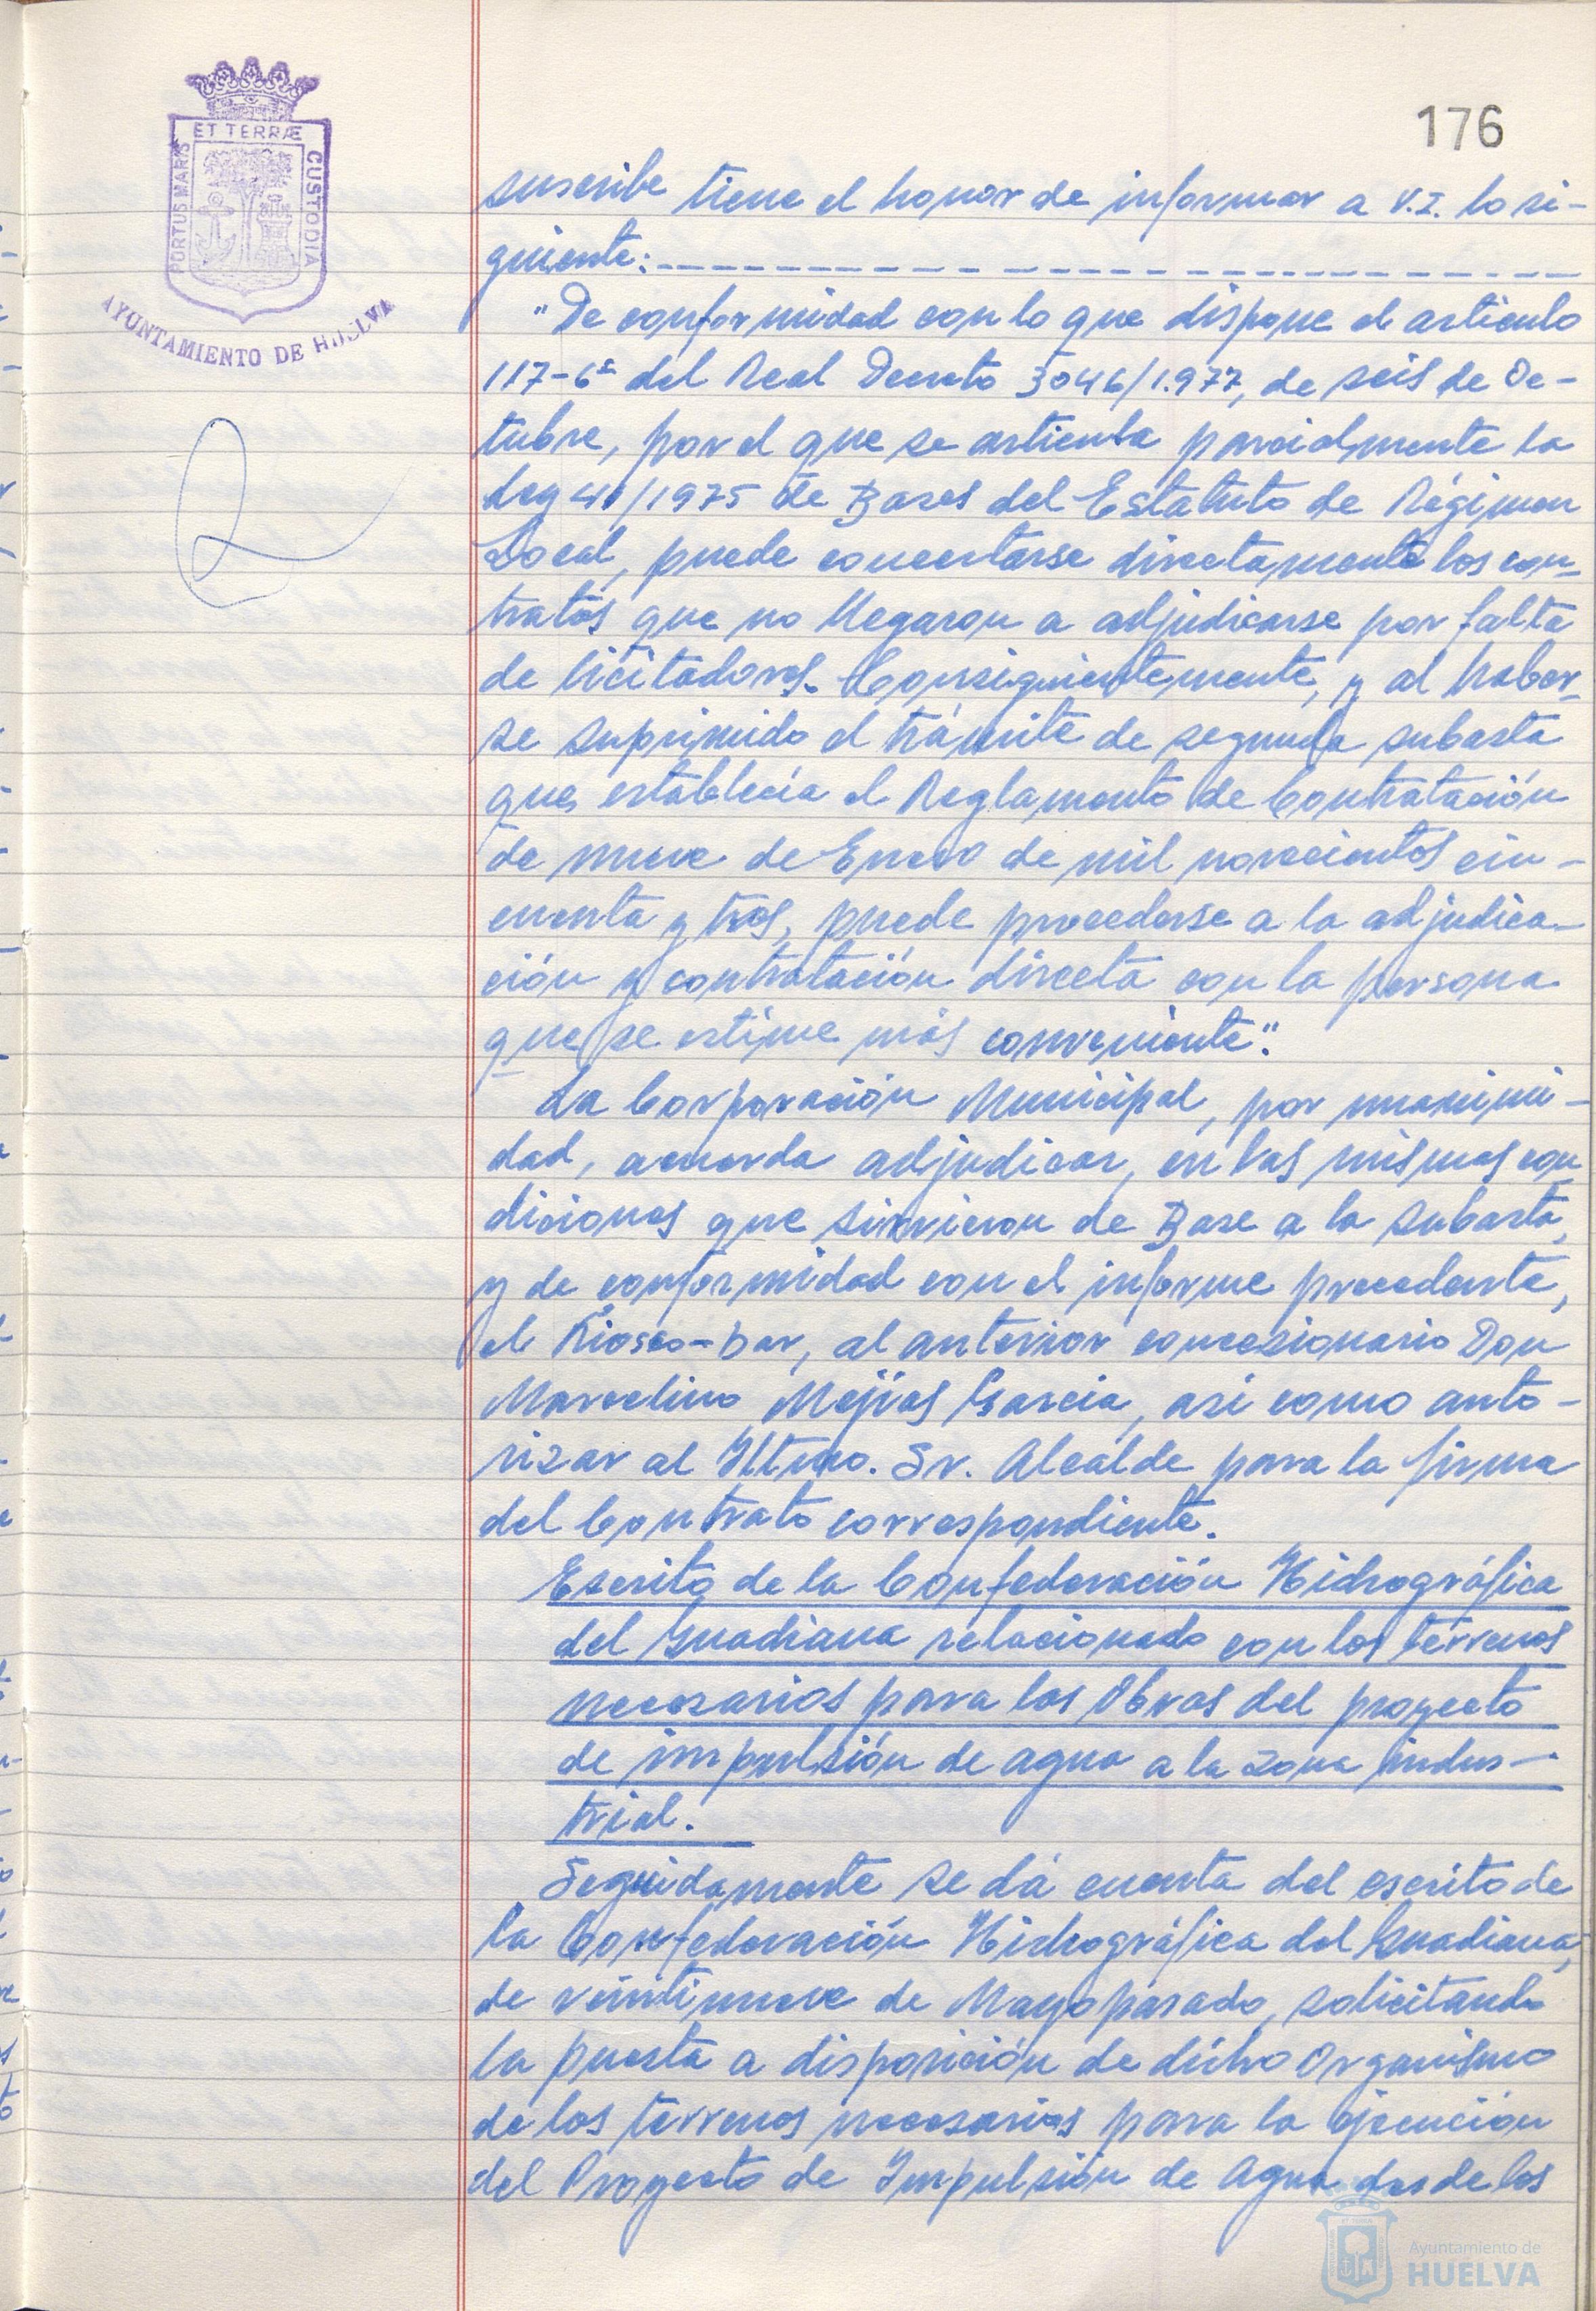 ET TERRÆ
PORTUS MARIS
CUSTODIA
AYUNTAMIENTO DE HUELVA
176
suscribe tiene el honor de informar a V.I. lo si-
guiente:
"De conformidad con lo que dispone el artículo
117-6º del Real Decreto 3046/1.977, de seis de Oc-
tubre, por el que se articula parcialmente la
Ley 41/1975 de Bases del Estatuto de Régimen
Local, puede concertarse directamente los con-
tratos que no llegaron a adjudicarse por falta
de licitadores. Consiguientemente, y al haber-
se suprimido el trámite de segunda subasta
que establecía el Reglamento de Contratación
de nueve de Enero de mil novecientos cin-
cuenta y tres, puede procederse a la adjudica-
ción y contratación directa con la persona
que se estime más conveniente".
La Corporación Municipal, por unanimi-
dad, acuerda adjudicar, en las mismas con-
diciones que sirvieron de Base a la subasta,
y de conformidad con el informe precedente,
el Kiosco-bar, al anterior concesionario Don
Marcelino Mejías García, asi como auto-
rizar al Iltmo. Sr. Alcalde para la firma
del Contrato correspondiente.
Escrito de la Confederación Hidrográfica
del Guadiana relacionado con los terrenos
necesarios para las Obras del proyecto
de impulsión de agua a la zona indus-
trial.
Seguidamente se dá cuenta del escrito de
la Confederación Hidrográfica del Guadiana,
de veintinueve de Mayo pasado, solicitando
la puesta a disposición de dicho Organismo
de los terrenos necesarios para la ejecución
del Proyecto de Impulsión de Agua desde los
Ayuntamiento de
HUELVA